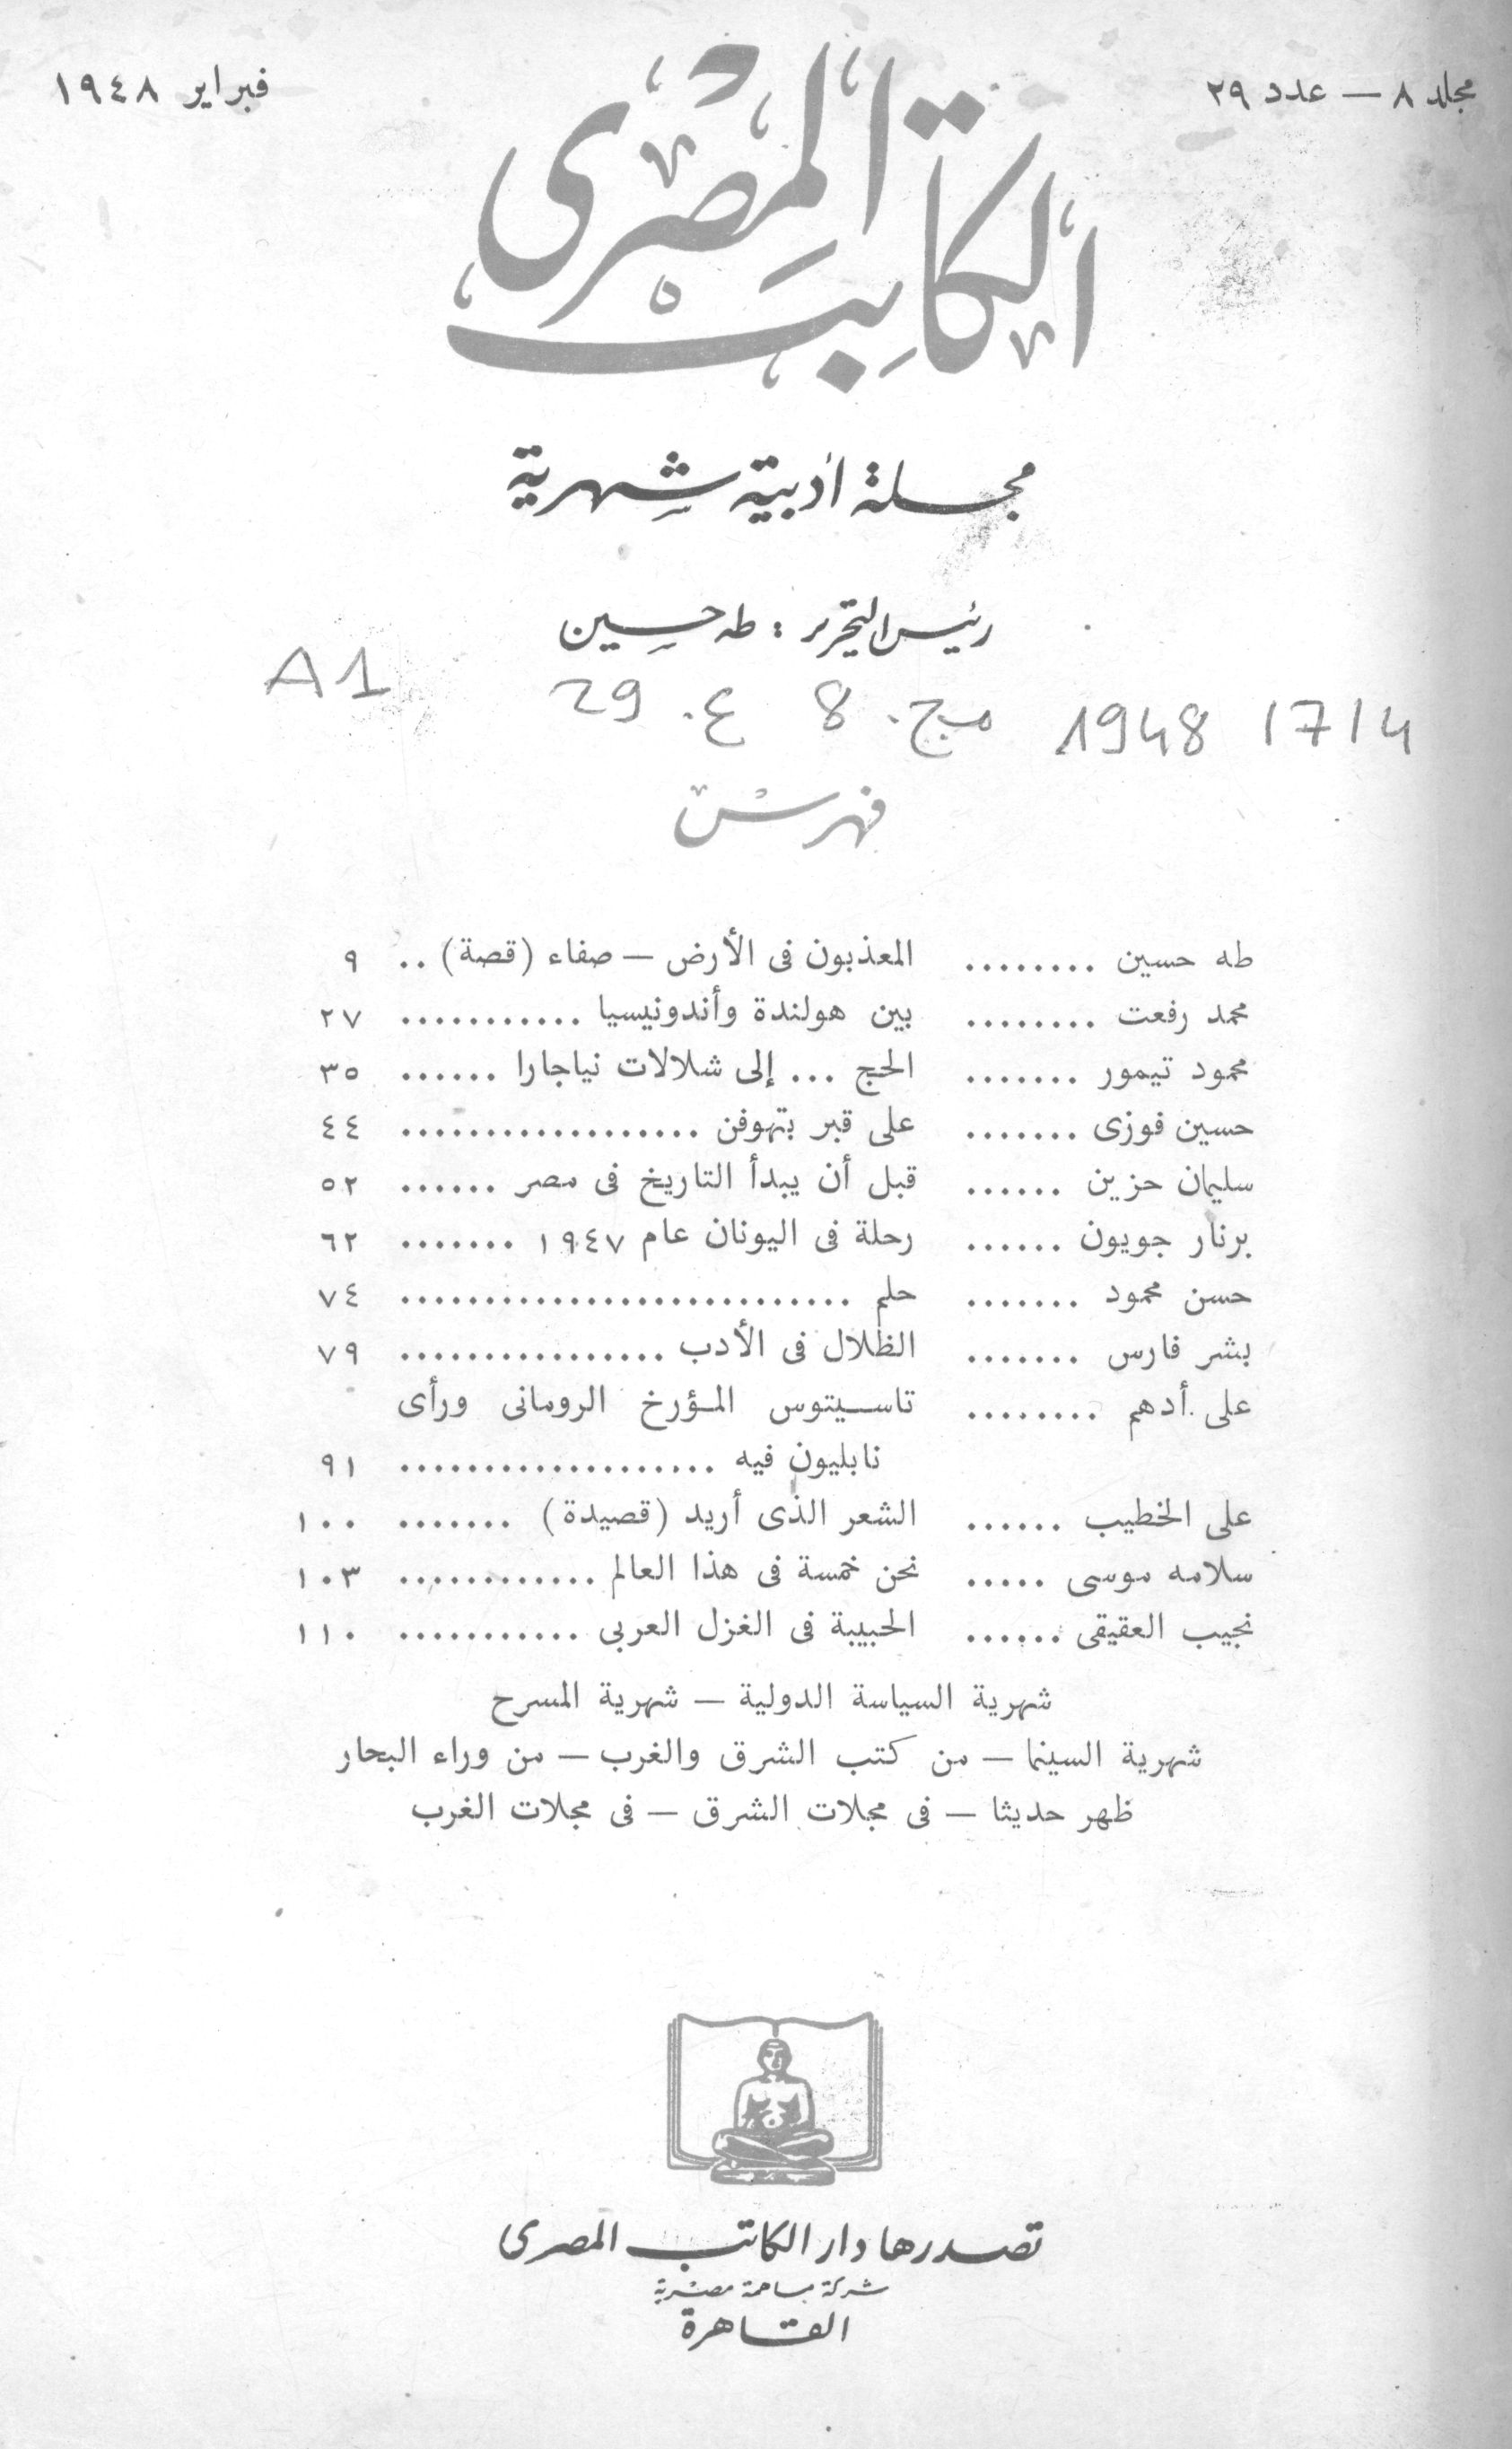 مجلد ٨ — عدد ٢٩
فبراير ١٩٤٨
الكاتب المصرى
مجلة أدبية شهرية
رئيس التحرير : طه حسين
A1
1948 / 7 / 4 مج. 8 ع. 29
فهرس
طه حسين ........ المعذبون فى الأرض — صفاء (قصة) .. ٩
محمد رفعت ........ بين هولندة وأندونيسيا ........... ٢٧
محمود تيمور ....... الحج ... إلى شلالات نياجارا ...... ٣٥
حسين فوزى ....... على قبر بتهوفن .................. ٤٤
سليمان حزين ...... قبل أن يبدأ التاريخ فى مصر ...... ٥٢
برنار جويون ...... رحلة فى اليونان عام ١٩٤٧ ....... ٦٢
حسن محمود ....... حلم ........................... ٧٤
بشر فارس ....... الظلال فى الأدب ................ ٧٩
على أدهم ........ تاسيتوس المؤرخ الرومانى ورأى
نابليون فيه ................... ٩١
على الخطيب ...... الشعر الذى أريد (قصيدة) ....... ١٠٠
سلامه موسى ..... نحن خمسة فى هذا العالم ............ ١٠٣
نجيب العقيقى ...... الحبيبة فى الغزل العربى ........... ١١٠
شهرية السياسة الدولية — شهرية المسرح
شهرية السينما — من كتب الشرق والغرب — من وراء البحار
ظهر حديثا — فى مجلات الشرق — فى مجلات الغرب
تصدرها دار الكاتب المصرى
شركة مساهمة مصرية
القاهرة